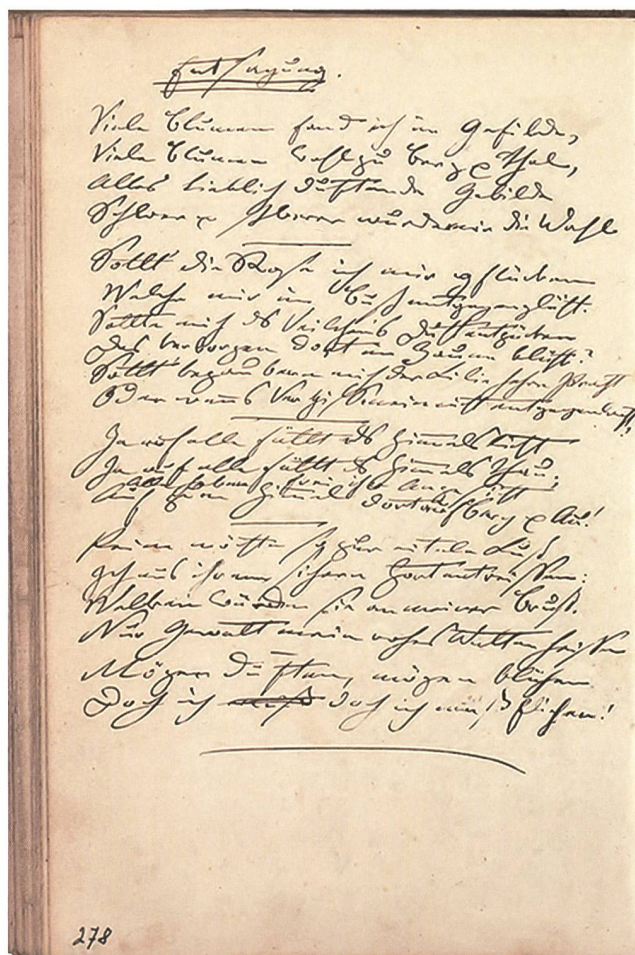 Entsagung.
Viele Blumen fand ich im Gefilde,
Viele Blumen wohl zu Berg & Thal,
Alles lieblich duftende Gebilde
Schwer & schwerer wurde mir die Wahl
Sollt' die Rose ich mir pflücken
Welche mir im Busch entgegenglüht.
Sollte mich ds Veilchens Duft entzücken
Das verborgen dort am Zaune blüht?
Sollt' bezaubern mich der Lilie hehre Pracht
Oder wenns Vergißmeinnicht entgegenlacht,
Ja auf alle fällt ds Himmels Licht
Ja auf alle fällt ds Himmels Thau,
Alle heben frei ihr Angesicht
Auf zum Himmel dort auf Berg & Au!
Keine möchte ich zur eitelen Lust
aus ihrem sichern Hort entreissen:
Welken würden sie an meiner Brust.
Nur Gewalt mein rohes Walten heissen
Mögen duften, mögen blühen
Doch ich doch ich muß fliehen!
278